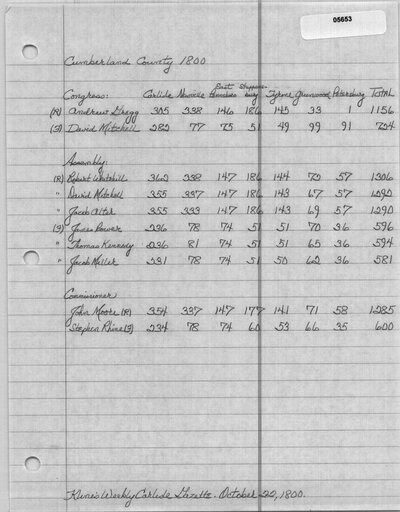 05653
Cumberland County 1800
Congress: Carlisle Newville East Pennsboro Shippensburg Tyrone Greenwood Petersburg TOTAL
(R) Andrew Gregg 305 338 146 186 145 33 1 1156
(F) David Mitchell 282 77 75 51 49 99 91 724
Assembly:
(R) Robert Whitehill 362 338 147 186 144 70 57 1306
" David Mitchell 355 337 147 186 143 67 57 1290
" Jacob Alter 355 333 147 186 143 69 57 1290
(F) James Power 236 78 74 51 51 70 36 596
" Thomas Kennedy 236 81 74 51 51 65 36 594
" Jacob Miller 231 78 74 51 50 62 36 581
Commissioner
John Moore (R) 354 337 147 177 141 71 58 1285
Stephen Rhine (F) 234 78 74 60 53 66 35 600
Kline's Weekly Carlisle Gazette. October 22, 1800.